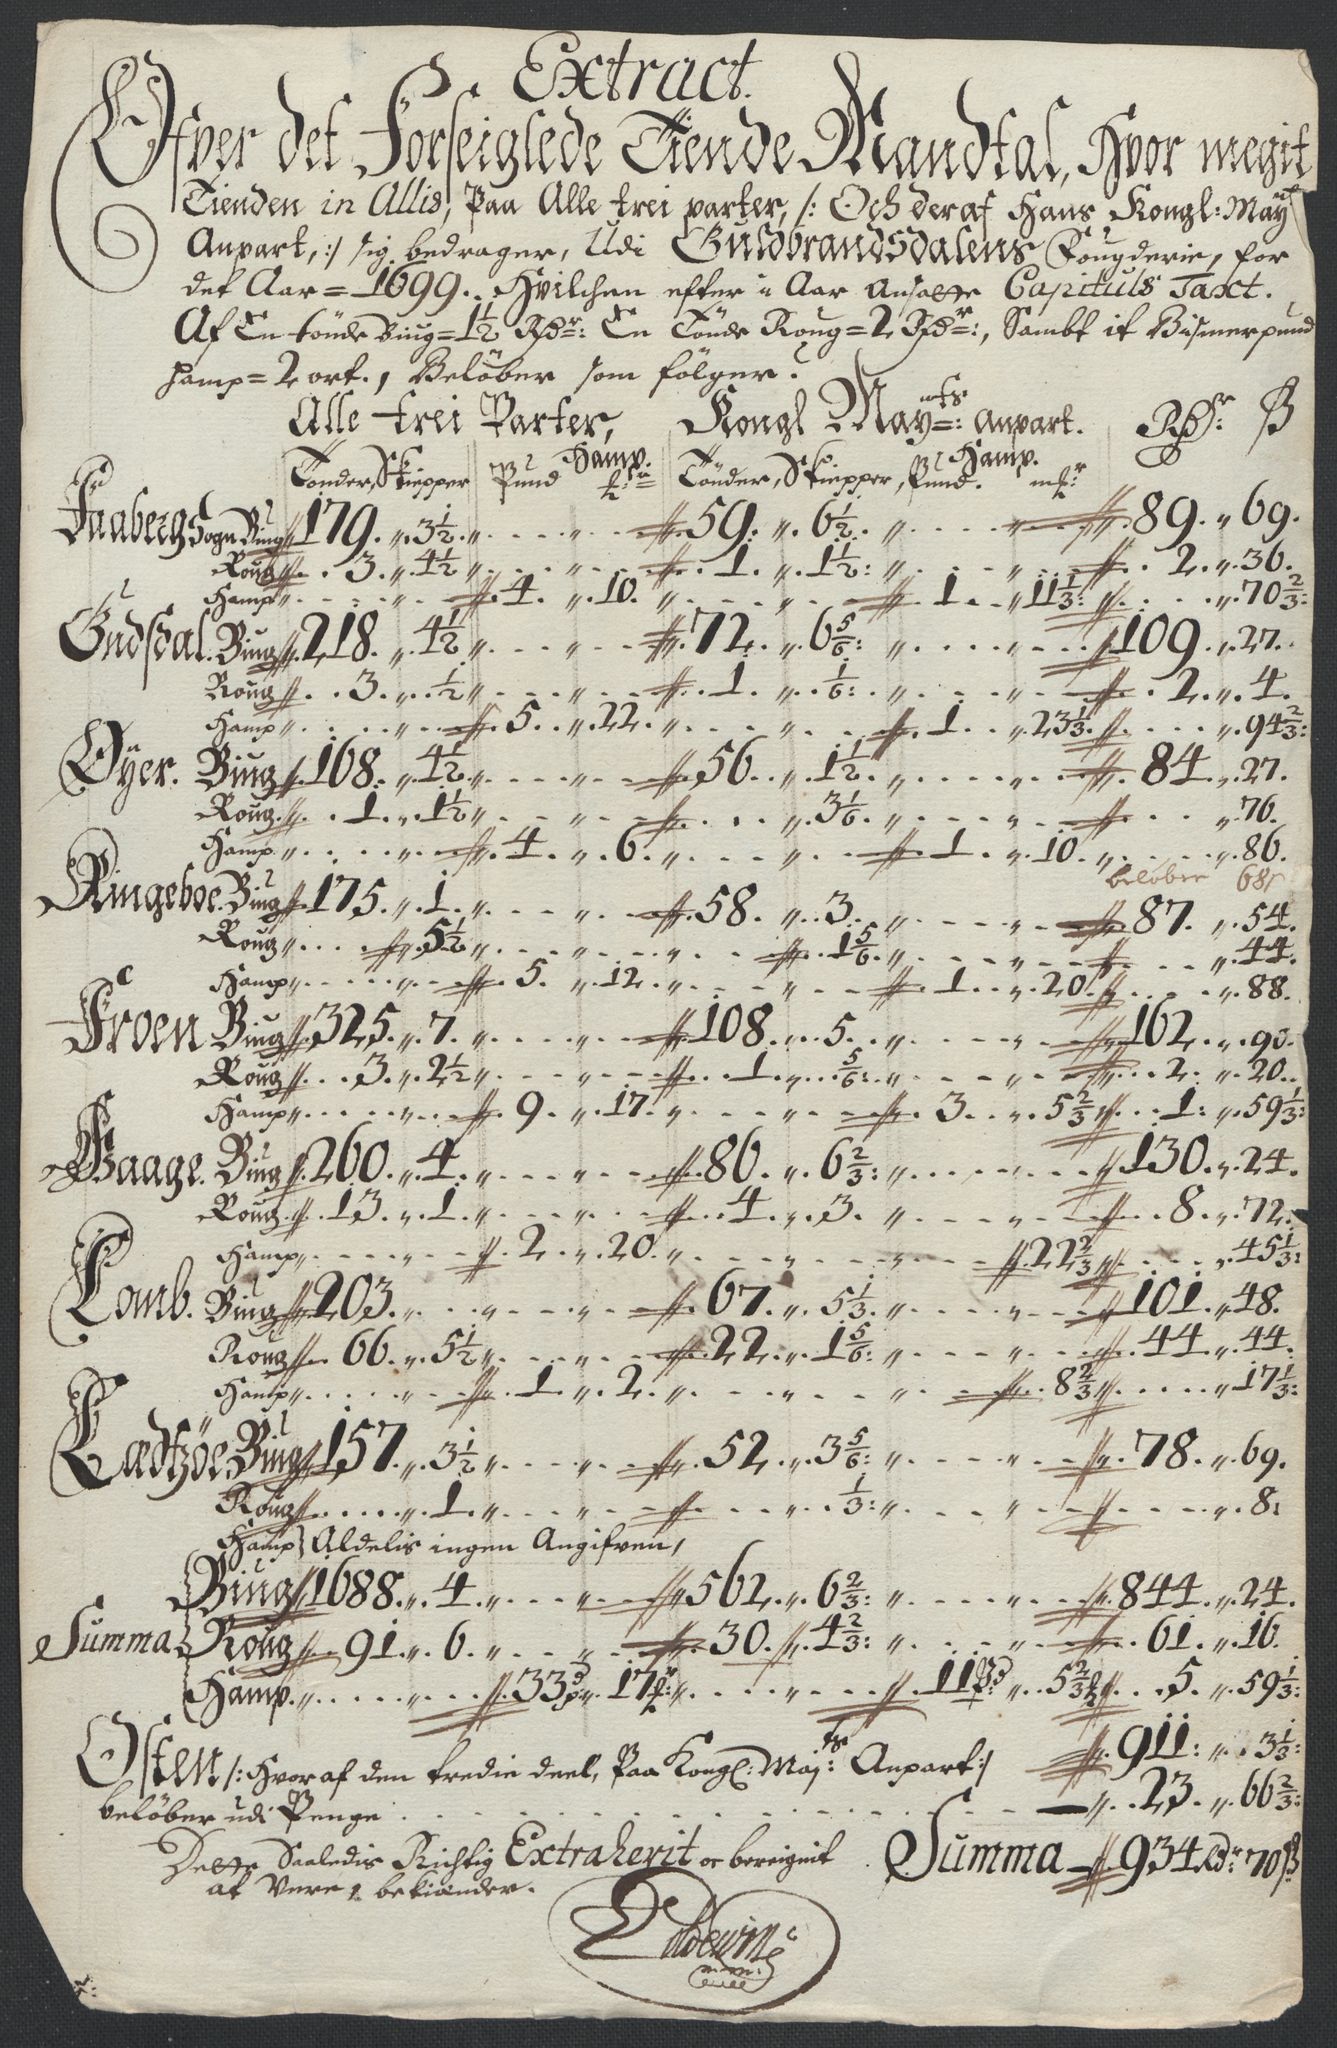 Extract.
Ofver det Forseiglede Tiende Mandtal, Hvor megit
Tienden in Allis, Paa Alle trei parter, /: Och deraf Hans Kongl: Mayts
Anpart, :/ sig bedrager, Udi Guldbrandsdalens Fougderie, for
det Aar = 1699. Hvilchen efter i Aar Ansatte Capituls Taxt.
Af En tönde Biug = 1½ Rdr: En Tönde Roug = 2 Rdr:, Sambt it Bismerpund
hamp = 2 ort., Beløber som følger.
Alle trei Parter, Kongl Mayts: Anpart. Rdr: ß
Hamp. Hamp.
Tønder, Skiepper Pund Tønder, Skiepper, Pund. mkr:
Faaberg Sogn Biug 179. 3½ 59. 6½ 89. 69.
Roug 3. 4½ 1. 1½: 2. 36.
Hamp 4. 10. 1. 11⅓: 70⅔:
Gudsdal. Biug 218. 4½ 72. 6⅚: 109. 27.
Roug 3. ½ 1. ⅙: 2. 4.
Hamp 5. 22. 1. 23⅓ 94⅔:
Øyer. Biug 168. 4½ 56. 1½ 84. 27.
Roug 1. 1½ 3⅙ 76.
Hamp 4. 6. 1. 10. 86.
beløber 681
Ringeboe. Biug 175. 1. 58. 3. 87. 54.
Roug 5½ 1⅚ 44.
Hamp 5. 12. 1. 20. 88.
Froen Biug 325. 7. 108. 5. 162. 90.
Roug 3. 2½ 1. ⅚: 2. 20.
Hamp 9. 17. 3. 5⅔ 1: 59⅓:
Vaage. Biug 260. 4. 86. 6⅔: 130. 24.
Roug 13. 1. 4. 3. 8. 72.
Hamp 2. 20. 22⅔ 45⅓:
Lomb. Biug 203. 67. 5⅓ 101. 48.
Roug 66. 5½ 22. 1⅚: 44. 44.
Hamp 1. 2. 8⅔ 17⅓:
Biug 157. 3½ 52. 3⅚: 78. 69.
Roug 1. ⅓: 8:
Hamp Aldelis ingen Angifven,
Biug 1688. 4. 562. 6⅔: 844. 24.
Summa Roug 91. 6. 30. 4⅔: 61. 16.
Hamp. 33 pd 17 11 Pd 5⅔ 5. 59⅓:
911: 3⅓:
Osten /: Hvoraf den tredie deel, Paa Kongl: Majts: Anpart :/
beløber udi Penge 23. 66⅔:
Summa 934 Rdr 70 ß
Dette Saaledis Richtig Extraherit oc beregnit
at Vere, bekiænder.